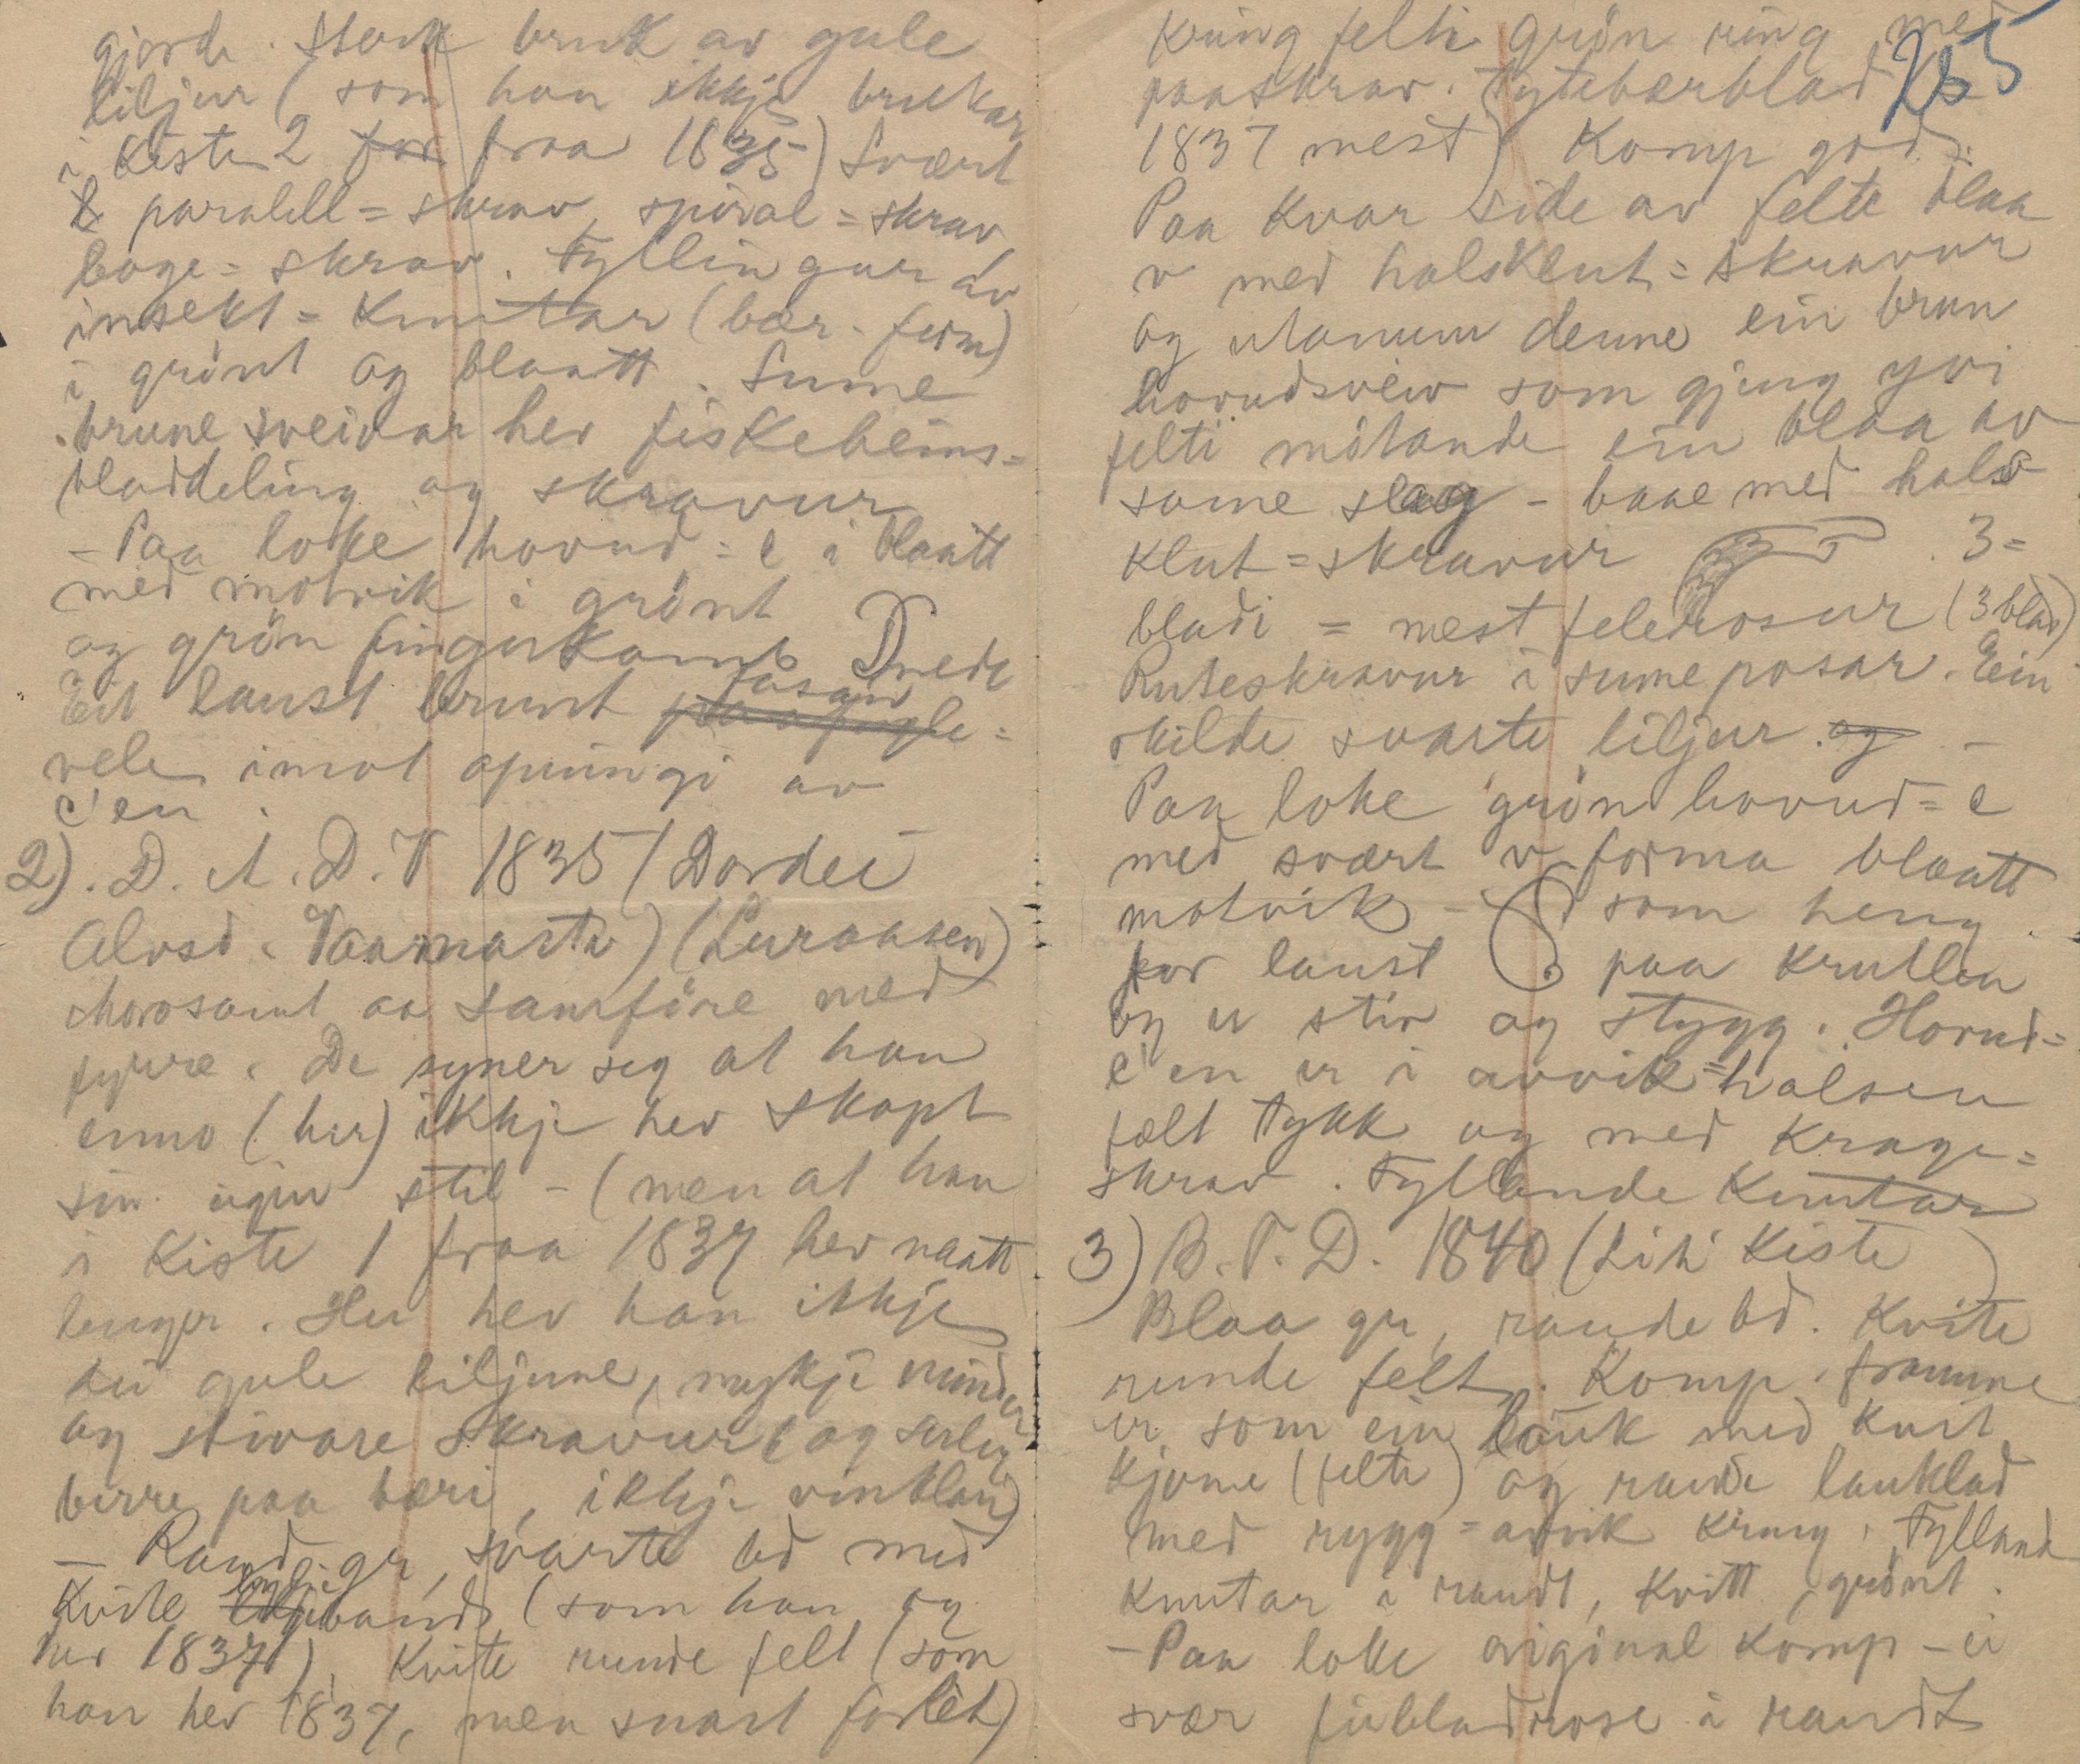 gjorde. Sterk bruk av gule
liljur (som han ikkje brukar
i Kiste 2 for fraa 1835) Svært
parallell = skrav, spiral = skrav
boge = skrav. Fyllingar av
insekt = Knutar (bær-form)
i grönt og blaatt. Sume
brune sveivar hev fiskebeins=
bladdeling og skravur
- Paa loke hovud = C i blaatt
med motvik i grönt
og grön fingerkamb D nede
Eit laust brunt
fasan
vele imot opningi av
C'en.
2). D. A. D. V 1835 (Dordei
Alvsd. Vaarnartr) (Luraasen)
Morosamt aa samföre med
fyrre. De syner seg at han
enno (her) ikkje hev skapt
sin eigin stil - (men at han
i Kiste 1 fraa 1837 hev naatt
lenger. Her hev han ikkje
dei gule liljune, mykje mindre
og stivare skravur (og serleg
berre paa bæri, ikkje vinblau)
- Raud gr, svarte bd med
bylgje
Kvite band (som han og
hev 1837), Kvite runde felt (som
han hev 1837, men snart forlèt)
265
kring felti grön ring med
paaskrav. Tytebærblad
1837 mest) Komp god.
Paa kvar side av felte blaa
v med halsklut = skravur
og utanum denne ein brun
hovudsveiv som gjeng yvi
felti mötande ein blaa av
same slag - baae med hals
klut = skravur 3=
bladi = mest felerosur (3 blad)
Ruteskravur i sume rosar. Ein
skilde svarte liljur. og -
Paa loke grön hovud = C
med svært v forma blaatt
motvik - som heng
for laust paa krullen
og er stiv og stygg. Hovud=
C'en er i avvik=halsen
fælt tykk og med Krage=
skrav. Fyllande Knutar
3) B. T. D. 1840 (Liti Kiste)
Blaa gr, raude bd. Kvite
runde felt. Komp. framme
er som ein lauk med kvit
kjerne (felte) og raude lauklad
med rygg = avvik kring. Fyllande
Knutar i raudt, kvitt, grönt.
- Paa loke original komp - ei
svær firbladrose i raudt